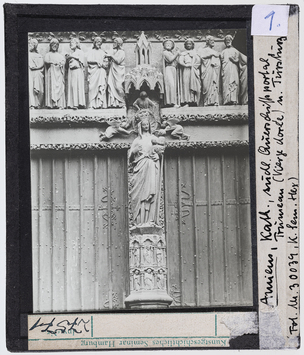 1.
Amiens, Kath., südl. Querschiffsportal-
Trumeau (Vierge dorée) u. Türsturz
Fot. Nr. 30039 (K. Sem. Hbg)
Kunstgeschichtliches Seminar Hamburg